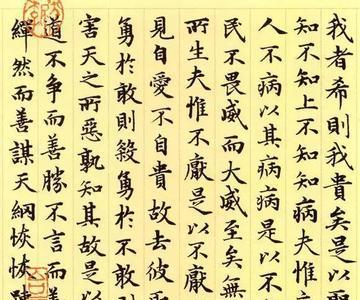 我者希則我貴矣是以
知不知上不知知病夫惟
人不病以其病病是以不
民不畏威而大威至矣無
所生夫惟不厭是以不厭
見自愛不自貴故去彼
勇於敢則殺勇於不敢
害天之所惡孰知其故是以
道不争而善勝不言而善
繟然而善謀天網恢恢